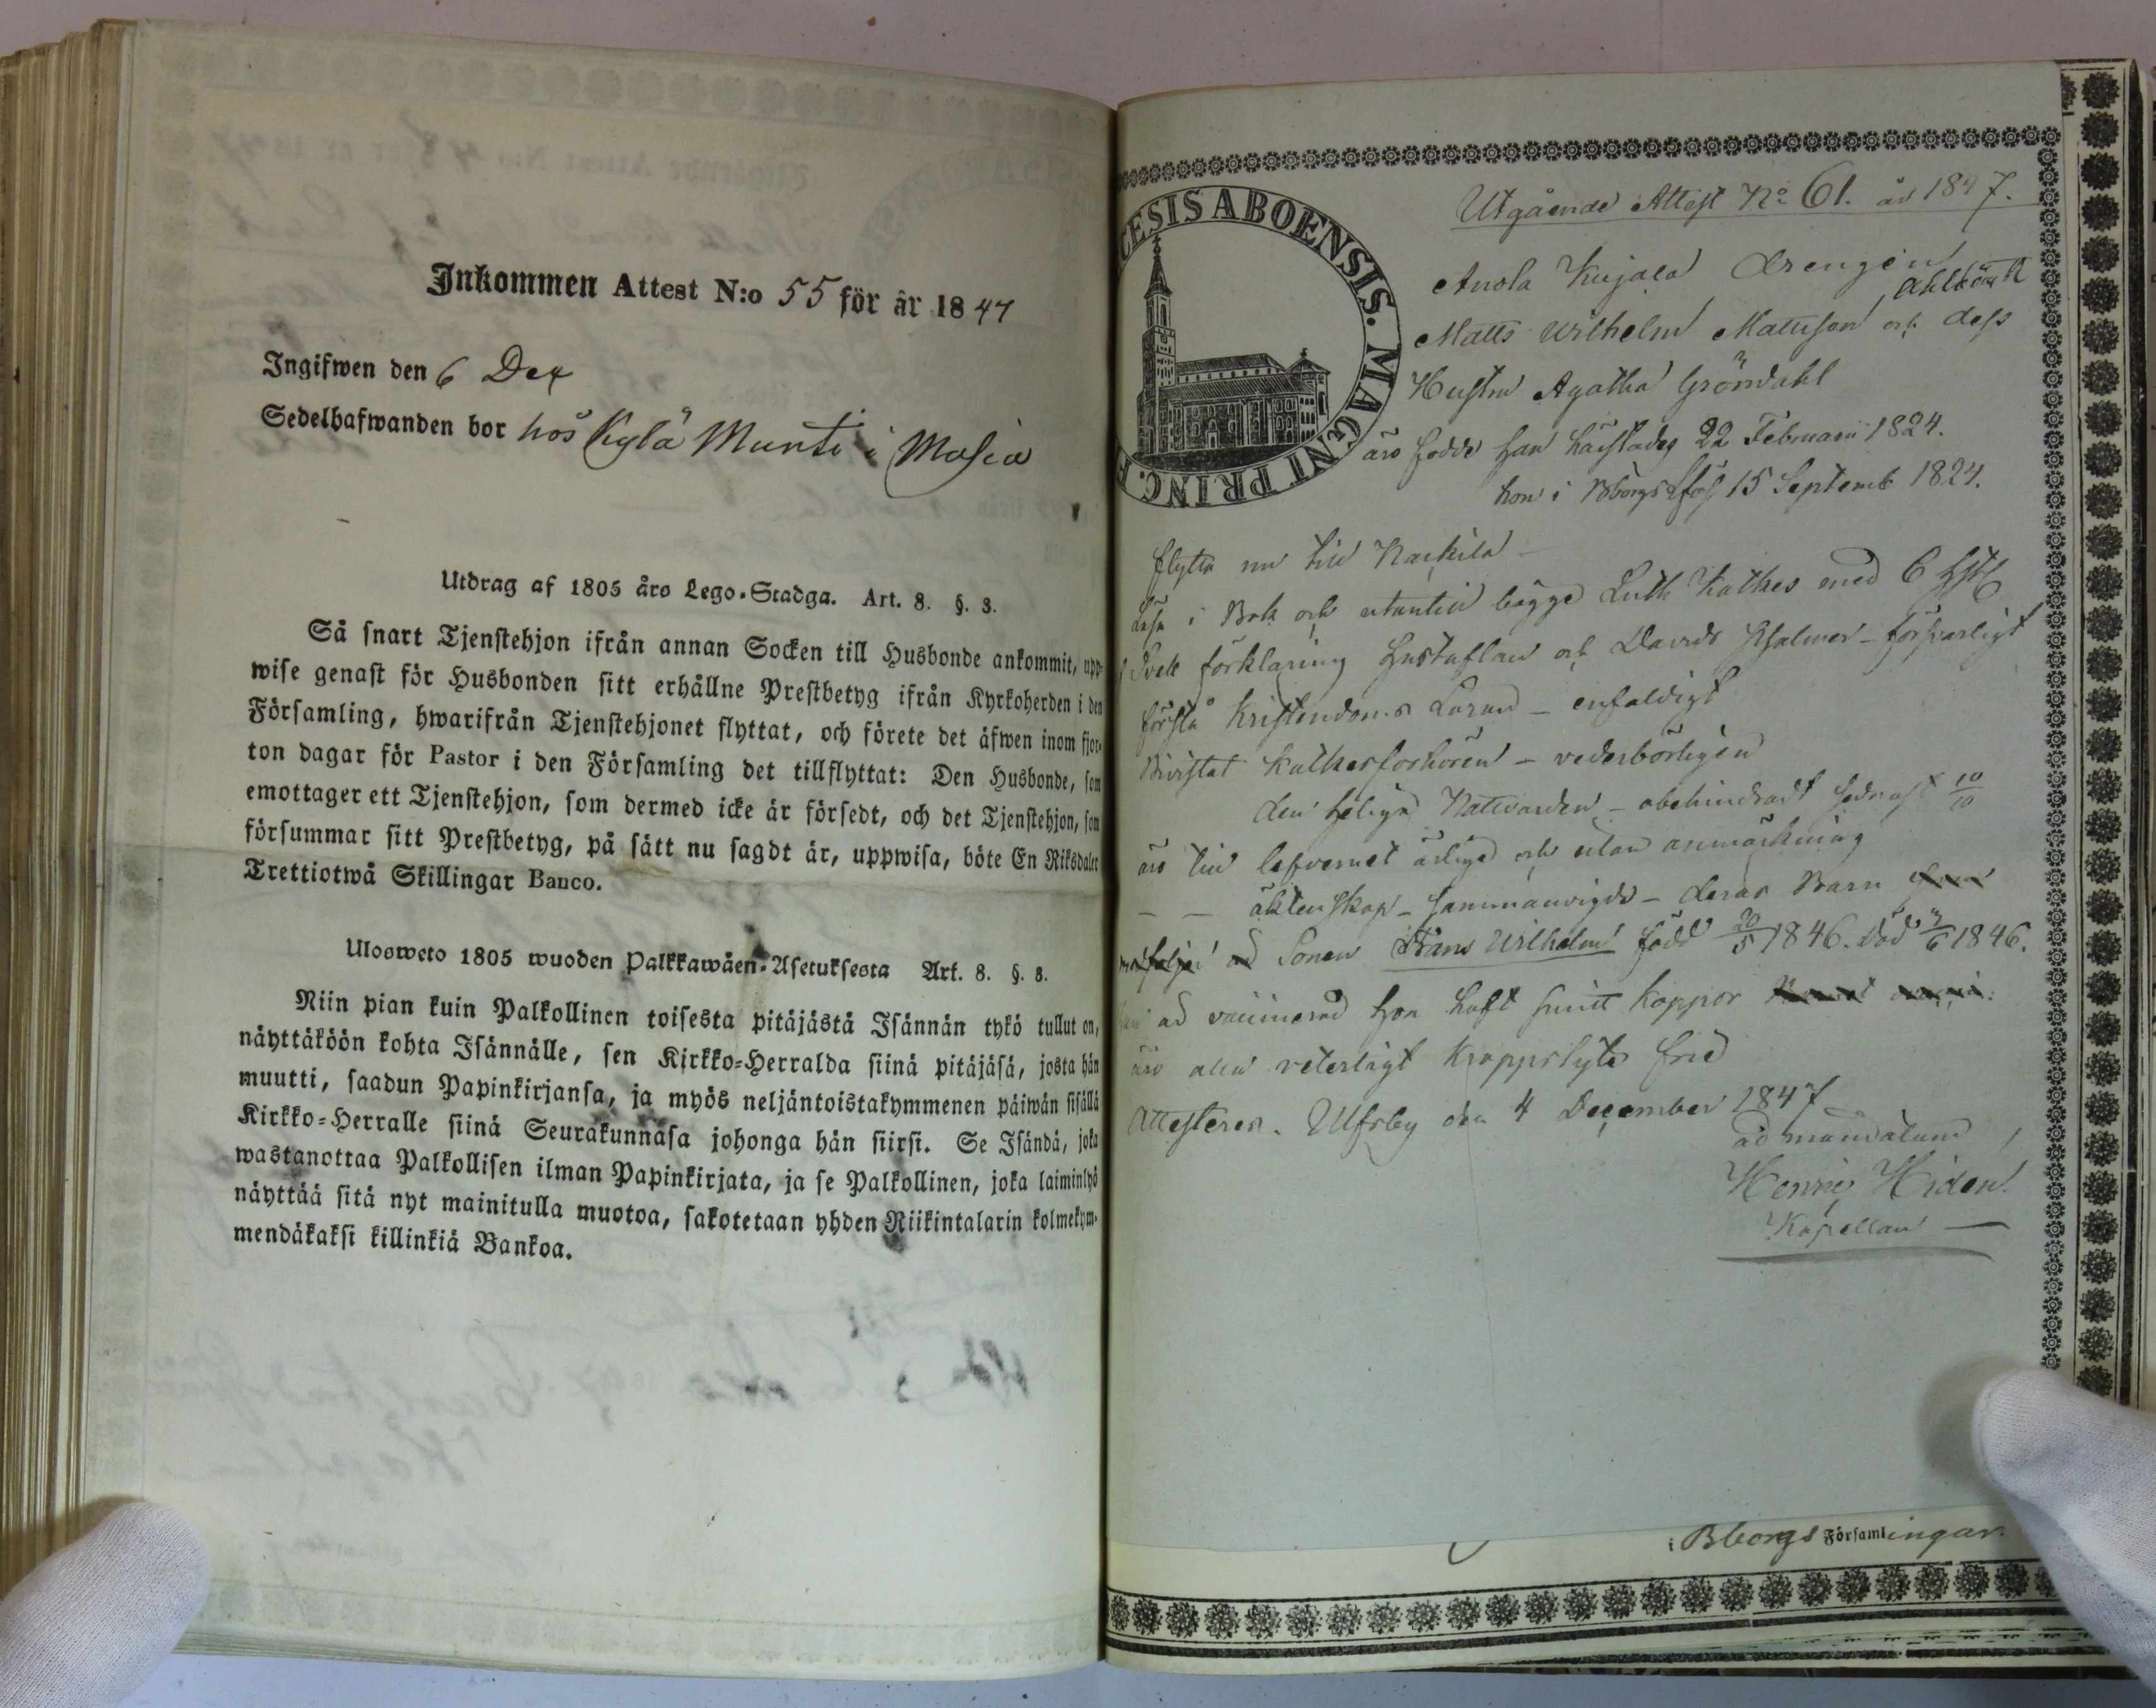 Inkommen Attest N:o 55 för år 1847
Ingifwen den 6 Dec
Sedelhafwanden bor hos Kylä Munti i Masia
Utdrag af 1805 års Lego-Stadga. Art. 8. §. 3.
Så snart Tjenstehjon ifrån annan Socken till Husbonde ankommit, upp-
wise genast för Husbonden sitt erhållne Prestbetyg ifrån Kyrkoherden i den
Församling, hwarifrån Tjenstehjonet flyttat, och förete det äfwen inom fjor-
ton dagar för Pastor i den Församling det tillflyttat: Den Husbonde, som
emottager ett Tjenstehjon, som dermed icke är försedt, och det Tjenstehjon, som
försummar sitt Prestbetyg, på sätt nu sagdt är, uppwisa, böte En Riksdaler
Trettiotwå Skillingar Banco.
Ulosweto 1805 wuoden Palkkawäen-Asetuksesta Art. 8. §. 3.
Niin pian kuin Palkollinen toisesta pitäjästä Isännän tykö tullut on,
näyttäköön kohta Isännälle, sen Kirkko-Herralda siinä pitäjäsä, josta hän
muutti, saadun Papinkirjansa, ja myös neljäntoistakymmenen päiwän sisällä
Kirkko-Herralle siinä Seurakunnasa johonga hän siirsi. Se Isändä, joka
wastanottaa Palkollisen ilman Papinkirjata, ja se Palkollinen, joka laiminlyö
näyttää sitä nyt mainitulla muotoa, sakotetaan yhden Riikintalarin kolmekym-
mendäkaksi killinkiä Bankoa.
CESIS ABOENSIS. MAGNI PRINC. F
Utgående Attest No 61. år 1847.
Anola Kujala Drengen
Ahlbäck
Matts Wilhelm Mattsson och dess
Hustru Agatha Gröndahl
äro födde han härstädes 22 Februari 1824.
hon i Bborgs 15 Septemb 1824.
flytta nu till Nackila
Läsa i Bok och utantill bägge Luth Kathes med
Sveb förklaring Gustaflan och Davids Psalmer - försvarligt
förstå Kristendoms Läran - enfaldigt
Bivistat Katkesförhören - vederbörligen
den heliga Nattvarden - obehindradt sednast 10/10
äro till lefvernet ärliga och utan anmärkning
- - äktenskap - sammanvigde - deras Barn
Sonen Frans Wilhelm född 20/5 1846. död 1846.
är vaccinerad hon haft koppor
äro allu veterligt kroppslyte frie
Attesterer. Ulfsby den 4 December 1847
ad mandatum
Henric Hidén
Kapellan
i Bborgs Församlingar.